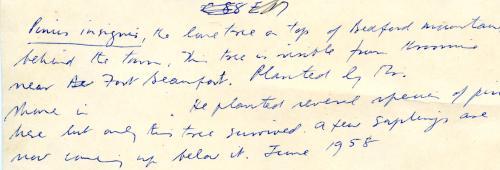 Pinus insignis, the lone tree on top of Bedford mountain
behind the town, This tree is visible from Kroomie
near Fort Beaufort. Planted by Mr.
in . He planted several species of pine
here but only this tree survived. A few saplings are
now coming up below it. June 1958